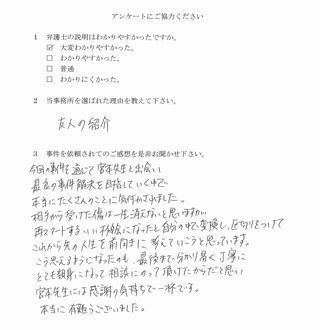 アンケートにご協力ください
1 弁護士の説明はわかりやすかったですか。
☑ 大変わかりやすかった。
□ わかりやすかった。
□ 普通
□ わかりにくかった。
2 当事務所を選ばれた理由を教えて下さい。
友人の紹介
3 事件を依頼されてのご感想を是非お聞かせ下さい。
今回の事件を通じて宮本先生と出会い
最良の事件解決を目指していく中で
本当にたくさんのことに気付かされました。
相手から受けた傷は一生消えないと思いますが
再スタートするいい機会になったと自分の中で変換し、区切りをつけて
これから先の人生を前向きに考えていこうと思っています。
こう思えるようになったのも、最後まで分かり易く丁寧に
とても親身になって相談にのって頂けたからだと思い
宮本先生には感謝の気持ちで一杯です。
本当に有難うございました。